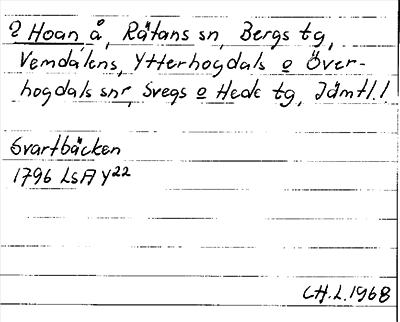 ? Hoan å, Rätans sn, Bergs tg,
Vemdalens, Ytterhogdals o Över-
hogdals snr, Svegs o Hede tg, Jämtl. l
Svartbäcken
1796 LSA Y22
CH.L. 1968